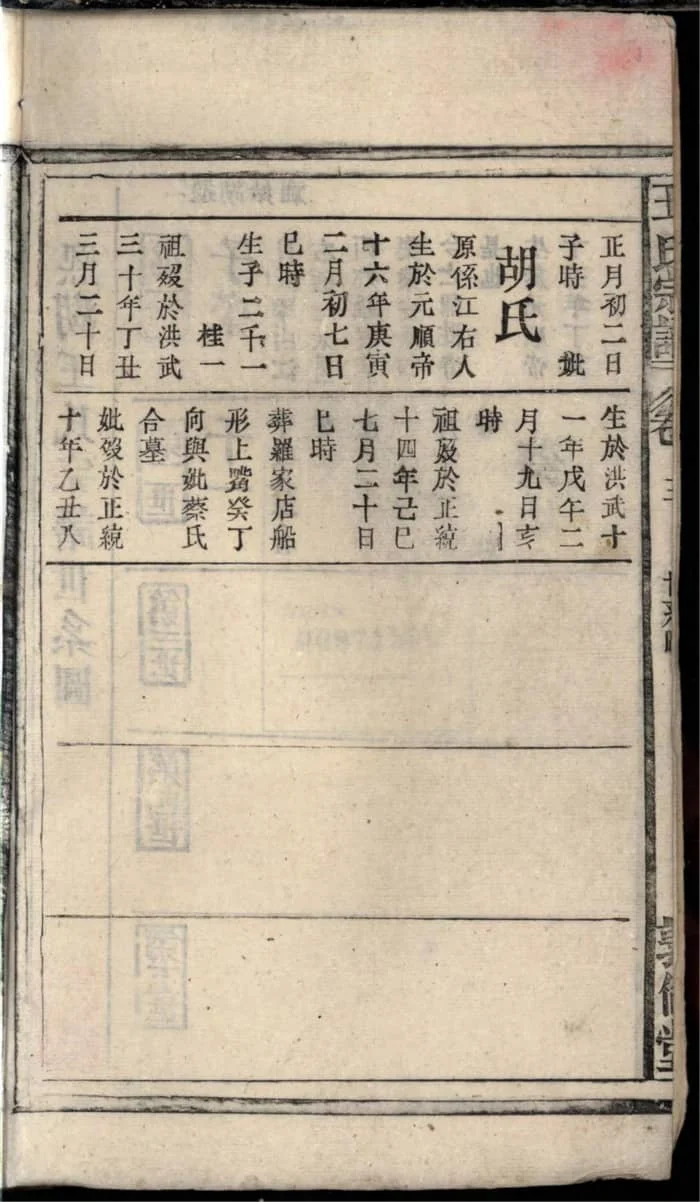 王氏宗譜
卷三
敦倫堂
正月初二日
子時 妣
胡氏
原係江右人
生於元順帝
十六年庚寅
二月初七日
巳時
生子二千一
桂一
祖歿於洪武
三十年丁丑
三月二十日
生於洪武十
一年戊午二
月十九日亥
時
祖歿於正統
十四年己巳
七月二十日
巳時
葬羅家店船
形上嘴癸丁
向與妣蔡氏
合墓
妣歿於正統
十年乙丑八